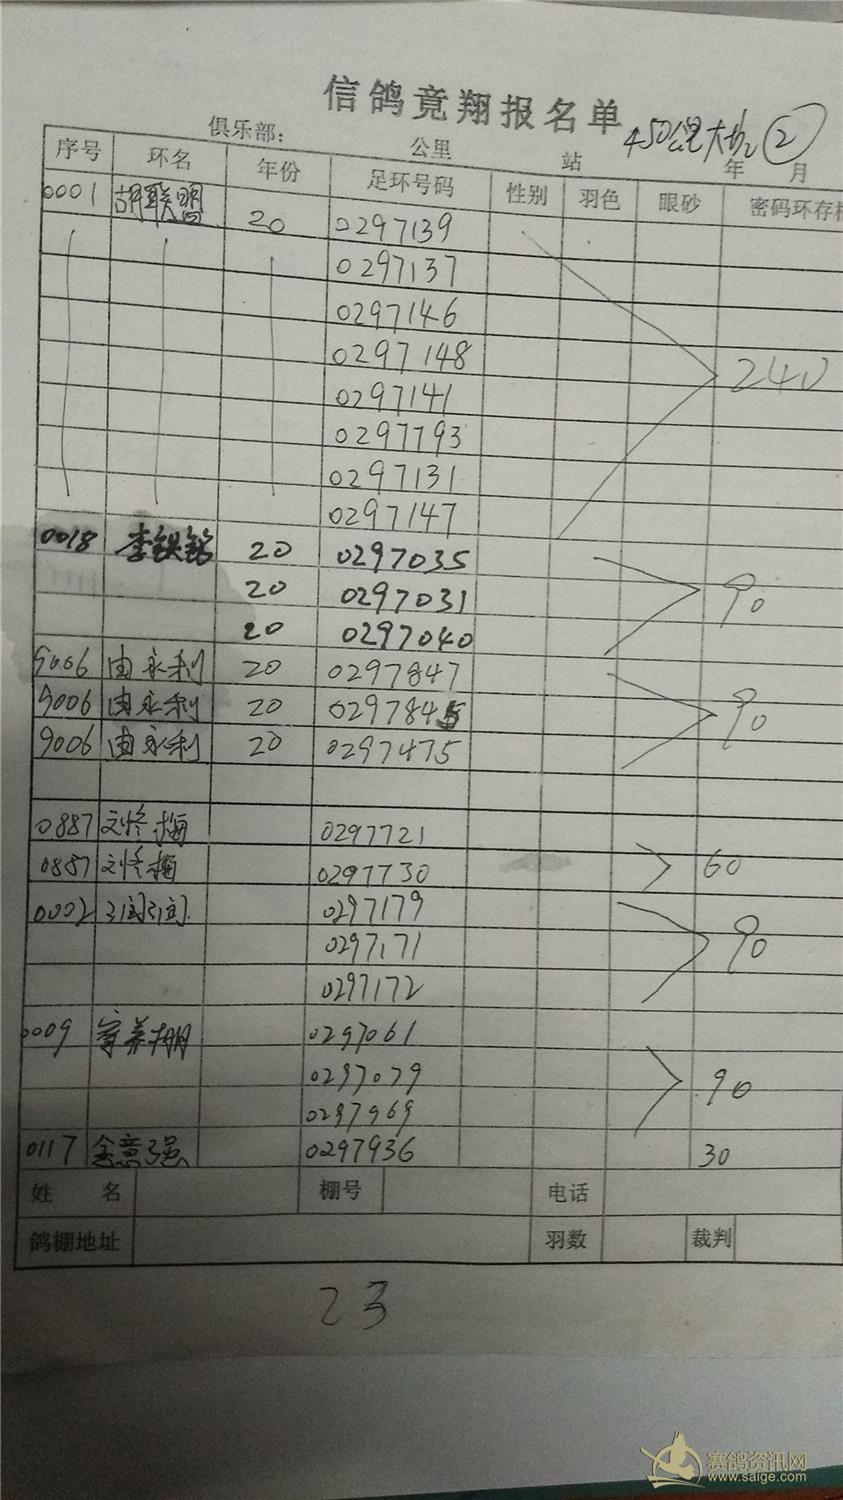 信鸽竟翔报名单
450公里大奖 ②
俱乐部: 公里 站 年 月
序号 环名 年份 足环号码 性别 羽色 眼砂 密码环存根
0001 胡联盟 20 0297139
0297137
0297146
0297148 240
0297141
0297793
0297131
0297147
0018 李铁铭 20 0297035
20 0297031 90
20 0297040
9006 由永利 20 0297847
9006 由永利 20 0297845 90
9006 由永利 20 0297475
0887 刘 梅 0297721
0887 刘 梅 0297730 60
0002 0297179
0297171 90
0297172
0009 寄养棚 0297061
0297079 90
0297969
0117 金意强 0297936 30
姓名 棚号 电话
鸽棚地址 羽数 裁判
23
赛鸽资讯网
www.saige.com